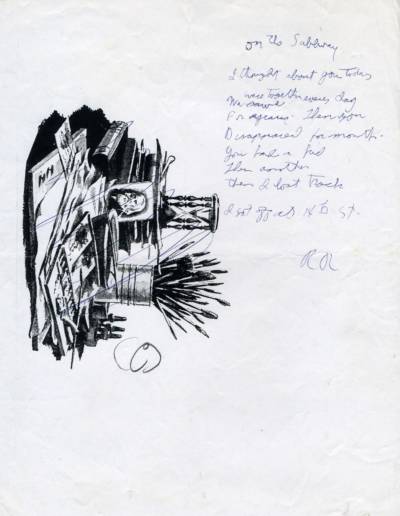 on the Subway
I thought about you today
we were together every day
For years. Then you
Disappeared for months.
You had a kid
Then another
then I lost track
I got off at St.
RR